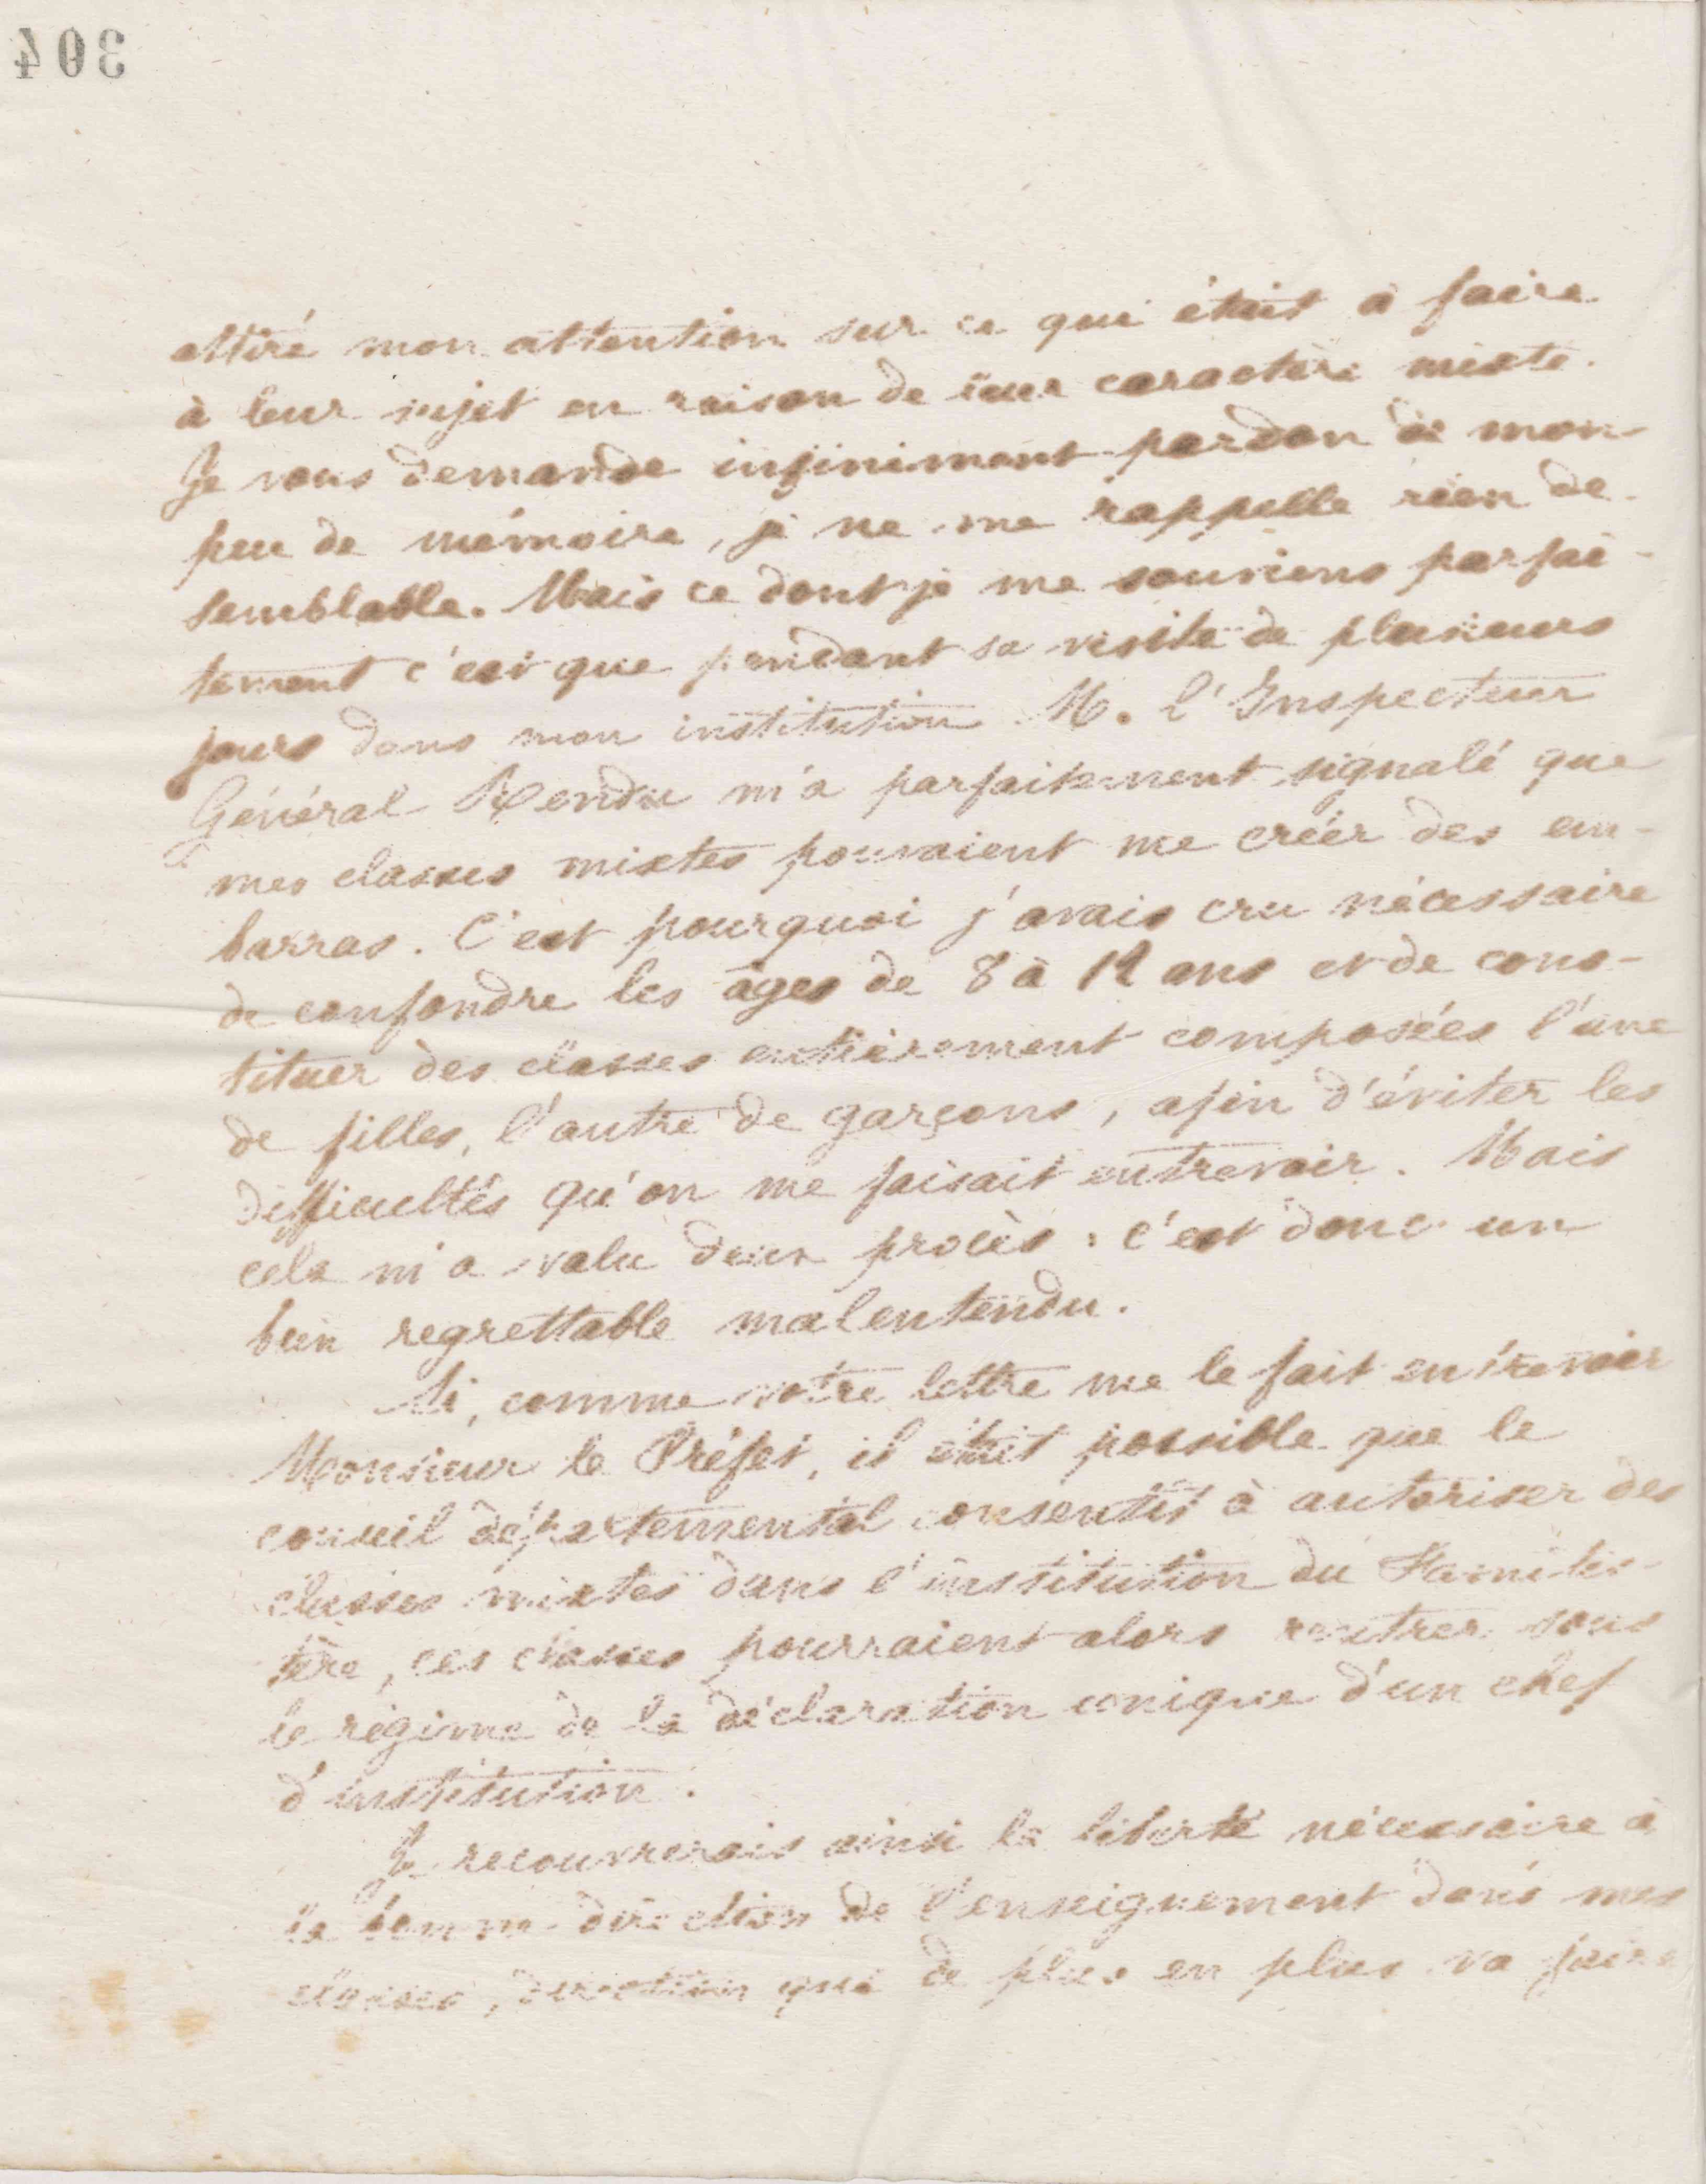 304
attiré mon attention sur ce qui était à faire
à leur sujet en raison de leur caractère mixte.
Je vous demande infiniment pardon de mon
peu de mémoire, je ne me rappelle rien de
semblable. Mais ce dont je me souviens parfai-
tement c'est que pendant sa visite de plusieurs
jours dans mon institution M. l'Inspecteur
Général Rendu m'a parfaitement signalé que
mes classes mixtes pouvaient me créer des em-
barras. C'est pourquoi j'avais cru nécessaire
de confondre les âges de 8 à 12 ans et de cons-
tituer des classes entièrement composées l'une
de filles, l'autre de garçons, afin d'éviter les
difficultés qu'on me faisait entrevoir. Mais
cela m'a valu deux procès : c'est donc un
bien regrettable malentendu.
Si, comme votre lettre me le fait entrevoir
Monsieur le Préfet, il était possible que le
conseil départemental consentit à autoriser des
classes mixtes dans l'institution du Familis-
tère, ces classes pourraient alors rentrer sous
le régime de la déclaration unique d'un chef
d'institution.
Je recouvrerais ainsi la liberté nécessaire à
la bonne direction de l'enseignement dans mes
classes, direction qui de plus en plus va faire